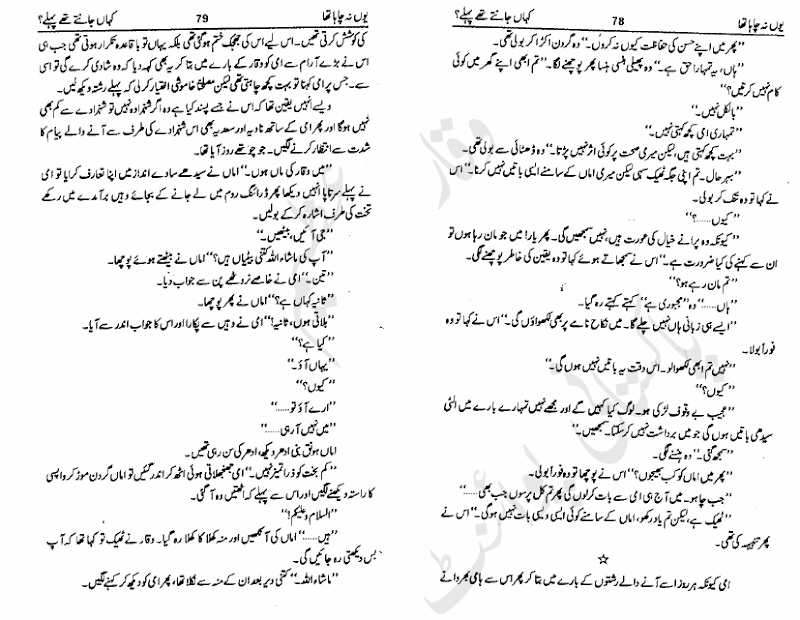 یوں نہ چاہا تھا 78 کہاں جانتے تھے پہلے؟
”پھر میں اپنے حسن کی حفاظت کیوں نہ کروں۔“ وہ گردن اکڑا کر بولی تھی۔
”ہاں، یہ تمہارا حق ہے۔“ وہ پھیکی ہنسی ہنسا پھر پوچھنے لگا۔ ”تم ابھی اپنے گھر میں کوئی
کام نہیں کرتیں؟“
”بالکل نہیں۔“
”تمہاری امی کچھ کہتی نہیں۔“
”بہت کچھ کہتی ہیں، لیکن میری صحت پر کوئی اثر نہیں پڑتا۔“ وہ ڈھٹائی سے بولی تھی۔
”بہر حال۔ تم اپنی جگہ ٹھیک سہی لیکن میری اماں کے سامنے ایسی باتیں نہیں کرنا۔“ اس
نے کہا تو وہ تنک کر بولی۔
”کیوں......؟“
”کیونکہ وہ پرانے خیال کی عورت ہیں، نہیں سمجھیں گی۔ پھر یار! میں جو مان رہا ہوں تو
ان سے کہنے کی کیا ضرورت ہے۔“ اس نے سمجھاتے ہوئے کہا تو وہ یقین کی خاطر پوچھنے لگی۔
”تم مان رہے ہو؟“
”ہاں......“ وہ ”مجبوری ہے“ کہتے کہتے رہ گیا۔
”ایسے ہی زبانی ہاں نہیں چلے گا۔ میں نکاح نامے پر بھی لکھواؤں گی۔“ اس نے کہا تو وہ
فوراً بولا۔
”نہیں تم ابھی لکھوا لو۔ اس وقت یہ باتیں نہیں ہوں گی۔“
”کیوں؟“
”عجیب بے وقوف لڑکی ہو۔ لوگ کیا کہیں گے اور مجھے نہیں تمہارے بارے میں الٹی
سیدھی باتیں ہوں گی جو میں برداشت نہیں کر سکتا۔ سمجھیں۔“
”سمجھ گئی۔“ وہ ہنسنے لگی۔
”پھر میں اماں کو کب بھیجوں؟“ اس نے پوچھا تو وہ فوراً بولی۔
”جب چاہو۔ میں آج ہی امی سے بات کر لوں گی پھر تم کل پرسوں جب بھی......“
”ٹھیک ہے، لیکن تم یاد رکھو، اماں کے سامنے کوئی ایسی ویسی بات نہیں ہو گی۔“ اس نے
پھر تنبیہہ کی تھی۔
☆
امی کیونکہ ہر روز اسے آنے والے رشتوں کے بارے میں بتا کر پھر اس سے ہامی بھروانے
یوں نہ چاہا تھا 79 کہاں جانتے تھے پہلے؟
کی کوشش کرتی تھیں۔ اس لیے اس کی جھجک ختم ہو گئی تھی بلکہ یہاں تو باقاعدہ تکرار ہوتی تھی جب ہی
اس نے بڑے آرام سے امی کو وقار کے بارے میں بتا کر یہ بھی کہہ دیا کہ وہ شادی کرے گی تو اسی
سے۔ جس پر امی کہنا تو بہت کچھ چاہتی تھی لیکن مصلحتاً خاموشی اختیار کر لی کہ پہلے رشتہ دیکھ لیں۔
ویسے انہیں یقین تھا کہ اس نے جسے پسند کیا ہے وہ اگر شہزادہ نہیں تو شہزادے سے کم بھی
نہیں ہو گا اور پھر امی کے ساتھ نادیہ اور سعدیہ بھی اس شہزادے کی طرف سے آنے والے پیام کا
شدت سے انتظار کرنے لگیں۔ جو چوتھے روز آیا تھا۔
”میں وقار کی ماں ہوں۔“ اماں نے سیدھے سادے انداز میں اپنا تعارف کرایا تو امی
نے پہلے سرتاپا انہیں دیکھا پھر ڈرائنگ روم میں لے جانے کے بجائے وہیں برآمدے میں رکھے
تخت کی طرف اشارہ کر کے بولیں۔
”جی آئیں، بیٹھیں۔“
”آپ کی ماشاء اللہ کتنی بیٹیاں ہیں؟“ اماں نے بیٹھتے ہوئے پوچھا۔
”تین۔“ امی نے خاصے نروٹھے پن سے جواب دیا۔
”ثانیہ کہاں ہے؟“ اماں نے پھر پوچھا۔
”بلاتی ہوں، ثانیہ!“ امی نے وہیں سے پکارا اور اس کا جواب اندر سے آیا۔
”کیا ہے؟“
”یہاں آؤ۔“
”کیوں؟“
”ارے آؤ تو......“
”میں نہیں آ رہی......“
اماں ہونق بنی ادھر دیکھ، ادھر کی سن رہی تھیں۔
”کم بخت کو ذرا تمیز نہیں۔“ امی جھنجھلاتی ہوئی اٹھ کر اندر گئیں تو اماں گردن موڑ کر واپسی
کا راستہ دیکھنے لگیں اور اس سے پہلے کہ اٹھتیں وہ آ گئی۔
”السلام وعلیکم!“
”ہیں......“ اماں کی آنکھیں اور منہ کھلا کا کھلا رہ گیا۔ وقار نے ٹھیک تو کہا تھا کہ آپ
بس دیکھتی رہ جائیں گی۔
”ماشاء اللہ۔“ کتنی دیر بعد ان کے منہ سے نکلا تھا، پھر امی کو دیکھ کر کہنے لگیں۔